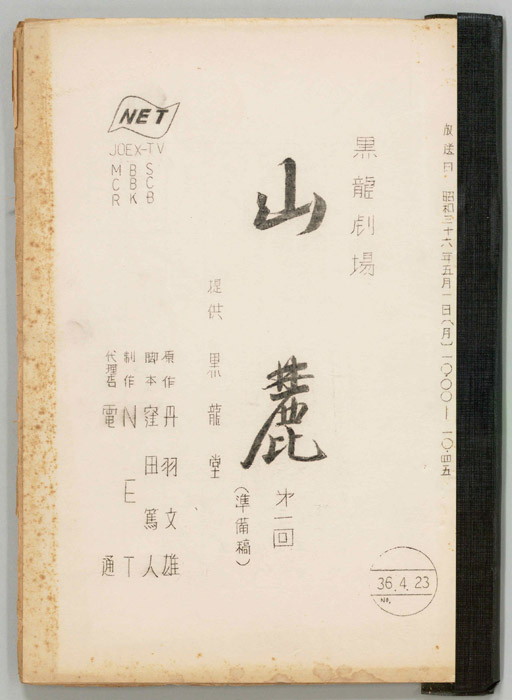 放送日 昭和三十六年五月一日(月)一〇.〇〇—一〇.四五
黒龍劇場
山麓
第一回
(準備稿)
提供 黒龍堂
原作 丹羽文雄
脚本 窪田篤人
制作 NET
代理店 電通
NET
JOEX-TV
MBS
CBC
RKB
36.4.23
NO.